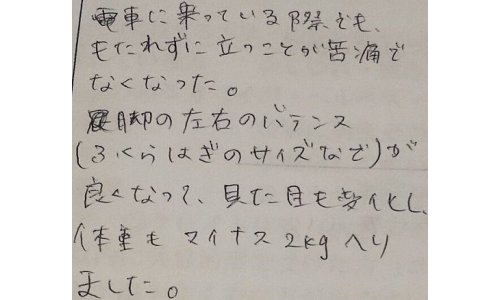 電車に乗っている際でも、
もたれずに立つことが苦痛で
なくなった。
脚の左右のバランス
(ふくらはぎのサイズなど)が
良くなって、見た目も変化し、
体重もマイナス2kgへり
ました。